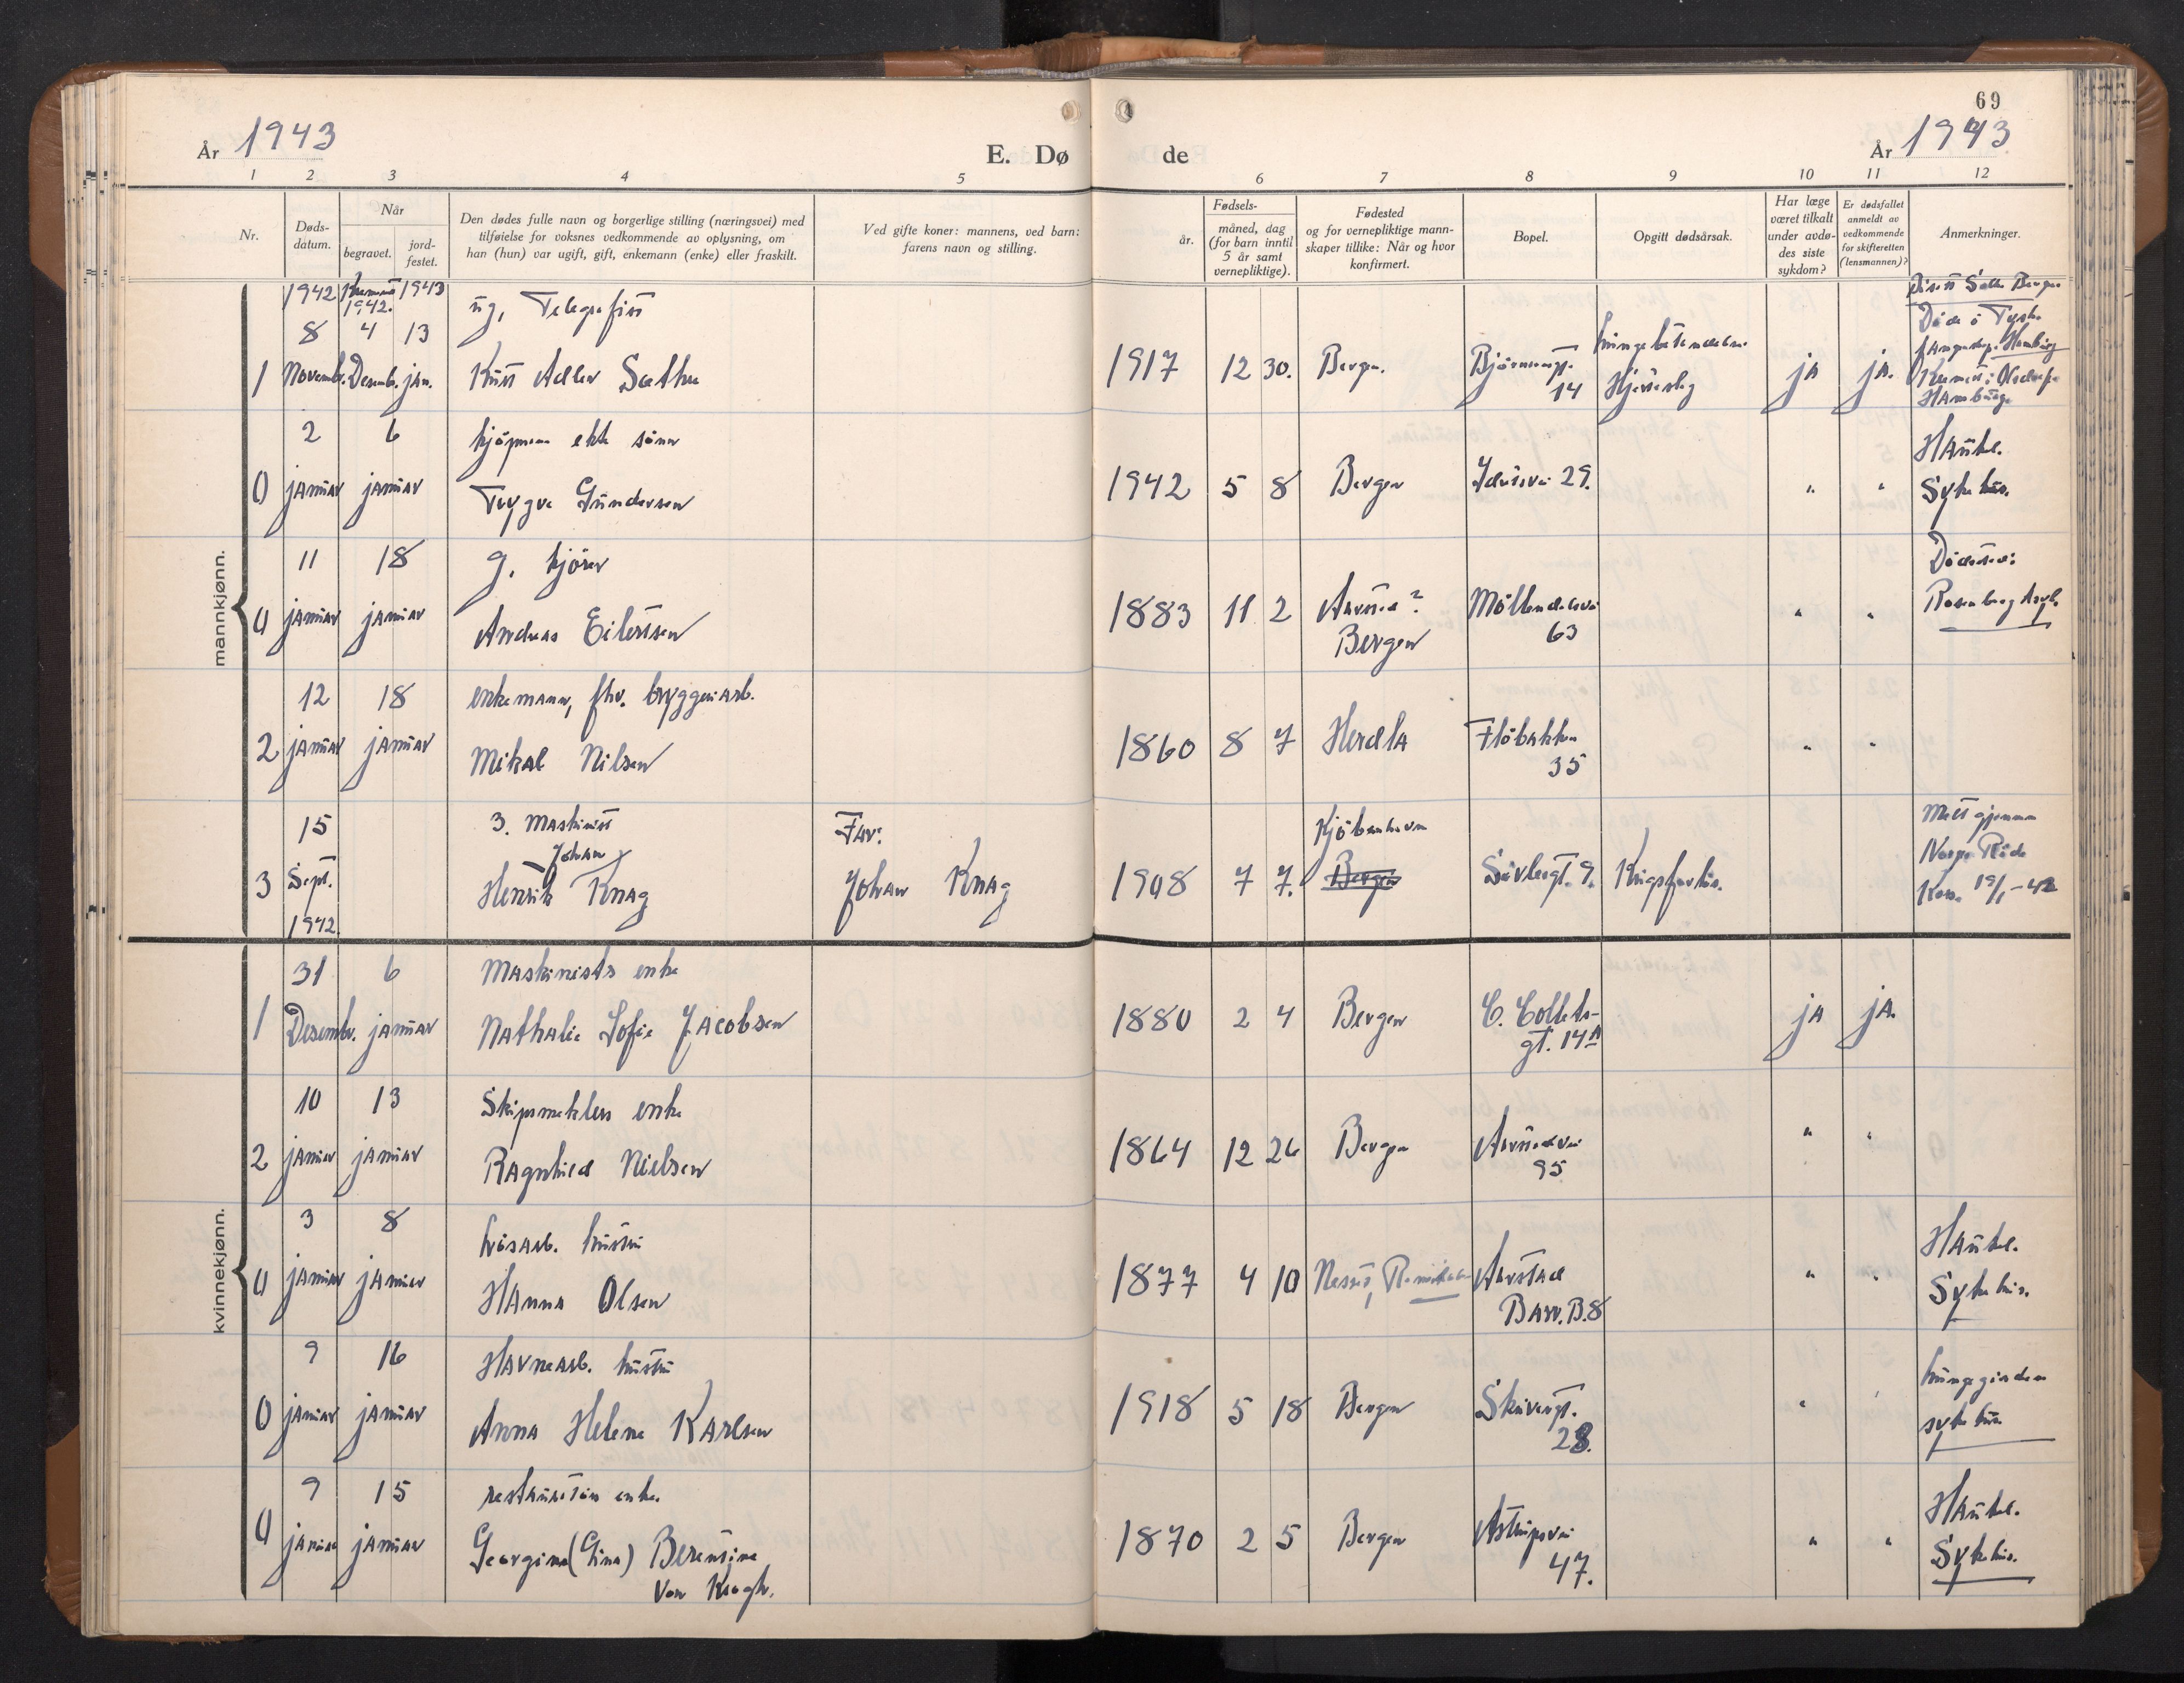 År 1943
E. Dø
1 2 3 4 5
Nr.
Døds-
datum.
Når
begravet.
jord-
festet.
Den dødes fulle navn og borgerlige stilling (næringsvei) med
tilføielse for voksnes vedkommende av oplysning, om
han (hun) var ugift, gift, enkemann (enke) eller fraskilt.
Ved gifte koner: mannens, ved barn:
farens navn og stilling.
69
de
År 1943
6 7 8 9 10 11 12
Fødsels-
år.
måned, dag
(for barn inntil
5 år samt
vernepliktige).
Fødested
og for vernepliktige mann-
skaper tillike: Når og hvor
konfirmert.
Bopel.
Opgitt dødsårsak.
Har læge
været tilkalt
under avdø-
des siste
sykdom?
Er dødsfallet
anmeldt av
vedkommende
for skifteretten
(lensmannen)?
Anmerkninger.
mannkjønn.
1942 1942. 1943
ug, Telegrafist
8 4 13
1 Novembr. Desembr. jan.
Adler Sæthre
1917 12 30. Bergen.
14
ja ja.
Døde i Tysk
Hamburg
Hamburg
2 6
kjøpmann ekte sønn
0 januar januar
Trygve Gundersen
1942 5 8 Bergen 29. " "
Haukel.
Sykehus.
11 18
g. kjører
0 januar januar
Andreas Eilertsen
1883 11 2 Aarstad?
Bergen
Møllendalsvei
63
" "
Dødssted:
Rosenberg Asyl.
12 18
enkemann, fhv. bryggeriarb.
2 januar januar
Mikal Nilsen
1860 8 7 Herdla
Fløbakken
35
" "
15
3. Maskinist
3 Sept.
1942
Johan
Henrik Knag
Far:
Johan Knag
1908 7 7.
Kjøbenhavn
Bergen
9. Krigsforlis.
Melt gjennem
Norges Røde
Kors. 19/1-42
kvinnekjønn.
31 6
Maskinists enke
1 Desembr. januar
Nathalie Sofie Jacobsen
1880 2 4 Bergen
C. Collets-
gt. 14A
ja ja.
10 13
Skipsmeklers enke
2 januar januar
Ragnhild Nielsen
1864 12 26 Bergen
Aarstadvei
95
" "
3 8
løsarb. hustru
0 januar januar
Hanna Olsen
1877 4 10
Aarstad
Barr. B. 8
" "
Haukel.
Sykehus.
9 16
Havnearb. hustru
0 januar januar
Anna Helene Karlsen
1918 5 18 Bergen
Skivergt.
28.
" "
sykehus
9 15
restauratør enke.
0 januar januar
Georgine (Gina) Berentine
von Krogh.
1870 2 5 Bergen
Astrupsvei
47.
" "
Haukel.
Sykehus.